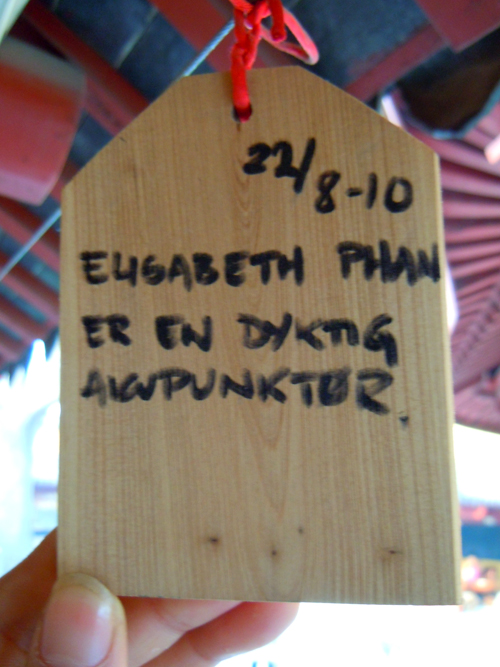 22/8-10
ELISABETH PHAN
ER EN DYKTIG
AKUPUNKTØR.